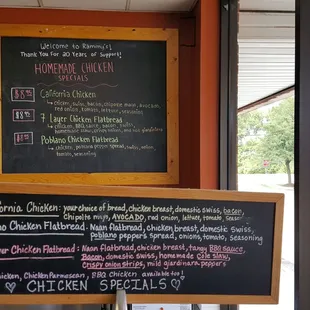 Welcome to Ramini's!
Thank You for 20 Years of Support!
HOMEMADE CHICKEN
SPECIALS
California Chicken
chicken, swiss, bacon, chipotle mayo, avocado,
red onion, tomato, lettuce, seasoning
7 Layer Chicken Flatbread
chicken, BBQ sauce, bacon, swiss,
homemade slaw, crispy onion, and mild giardiniera
Poblano Chicken Flatbread
chicken, poblano pepper spread, swiss, onion,
tomato, seasoning
fornia Chicken: your choice of bread, chicken breast, domestic swiss, bacon,
Chipotle mayo, AVOCADO, red onion, lettuce, tomato,
no Chicken Flatbread: Naan flatbread, chicken breast, domestic swiss,
poblano pepper spread, onions, tomato, seasoning
yer Chicken Flatbread: Naan flatbread, chicken breast, tangy BBQ sauce,
Bacon, domestic swiss, homemade Cole slaw,
Crispy onion strips, mild giardinara peppers
hicken, Chicken Parmesean, BBQ Chicken available too!
CHICKEN SPECIALS